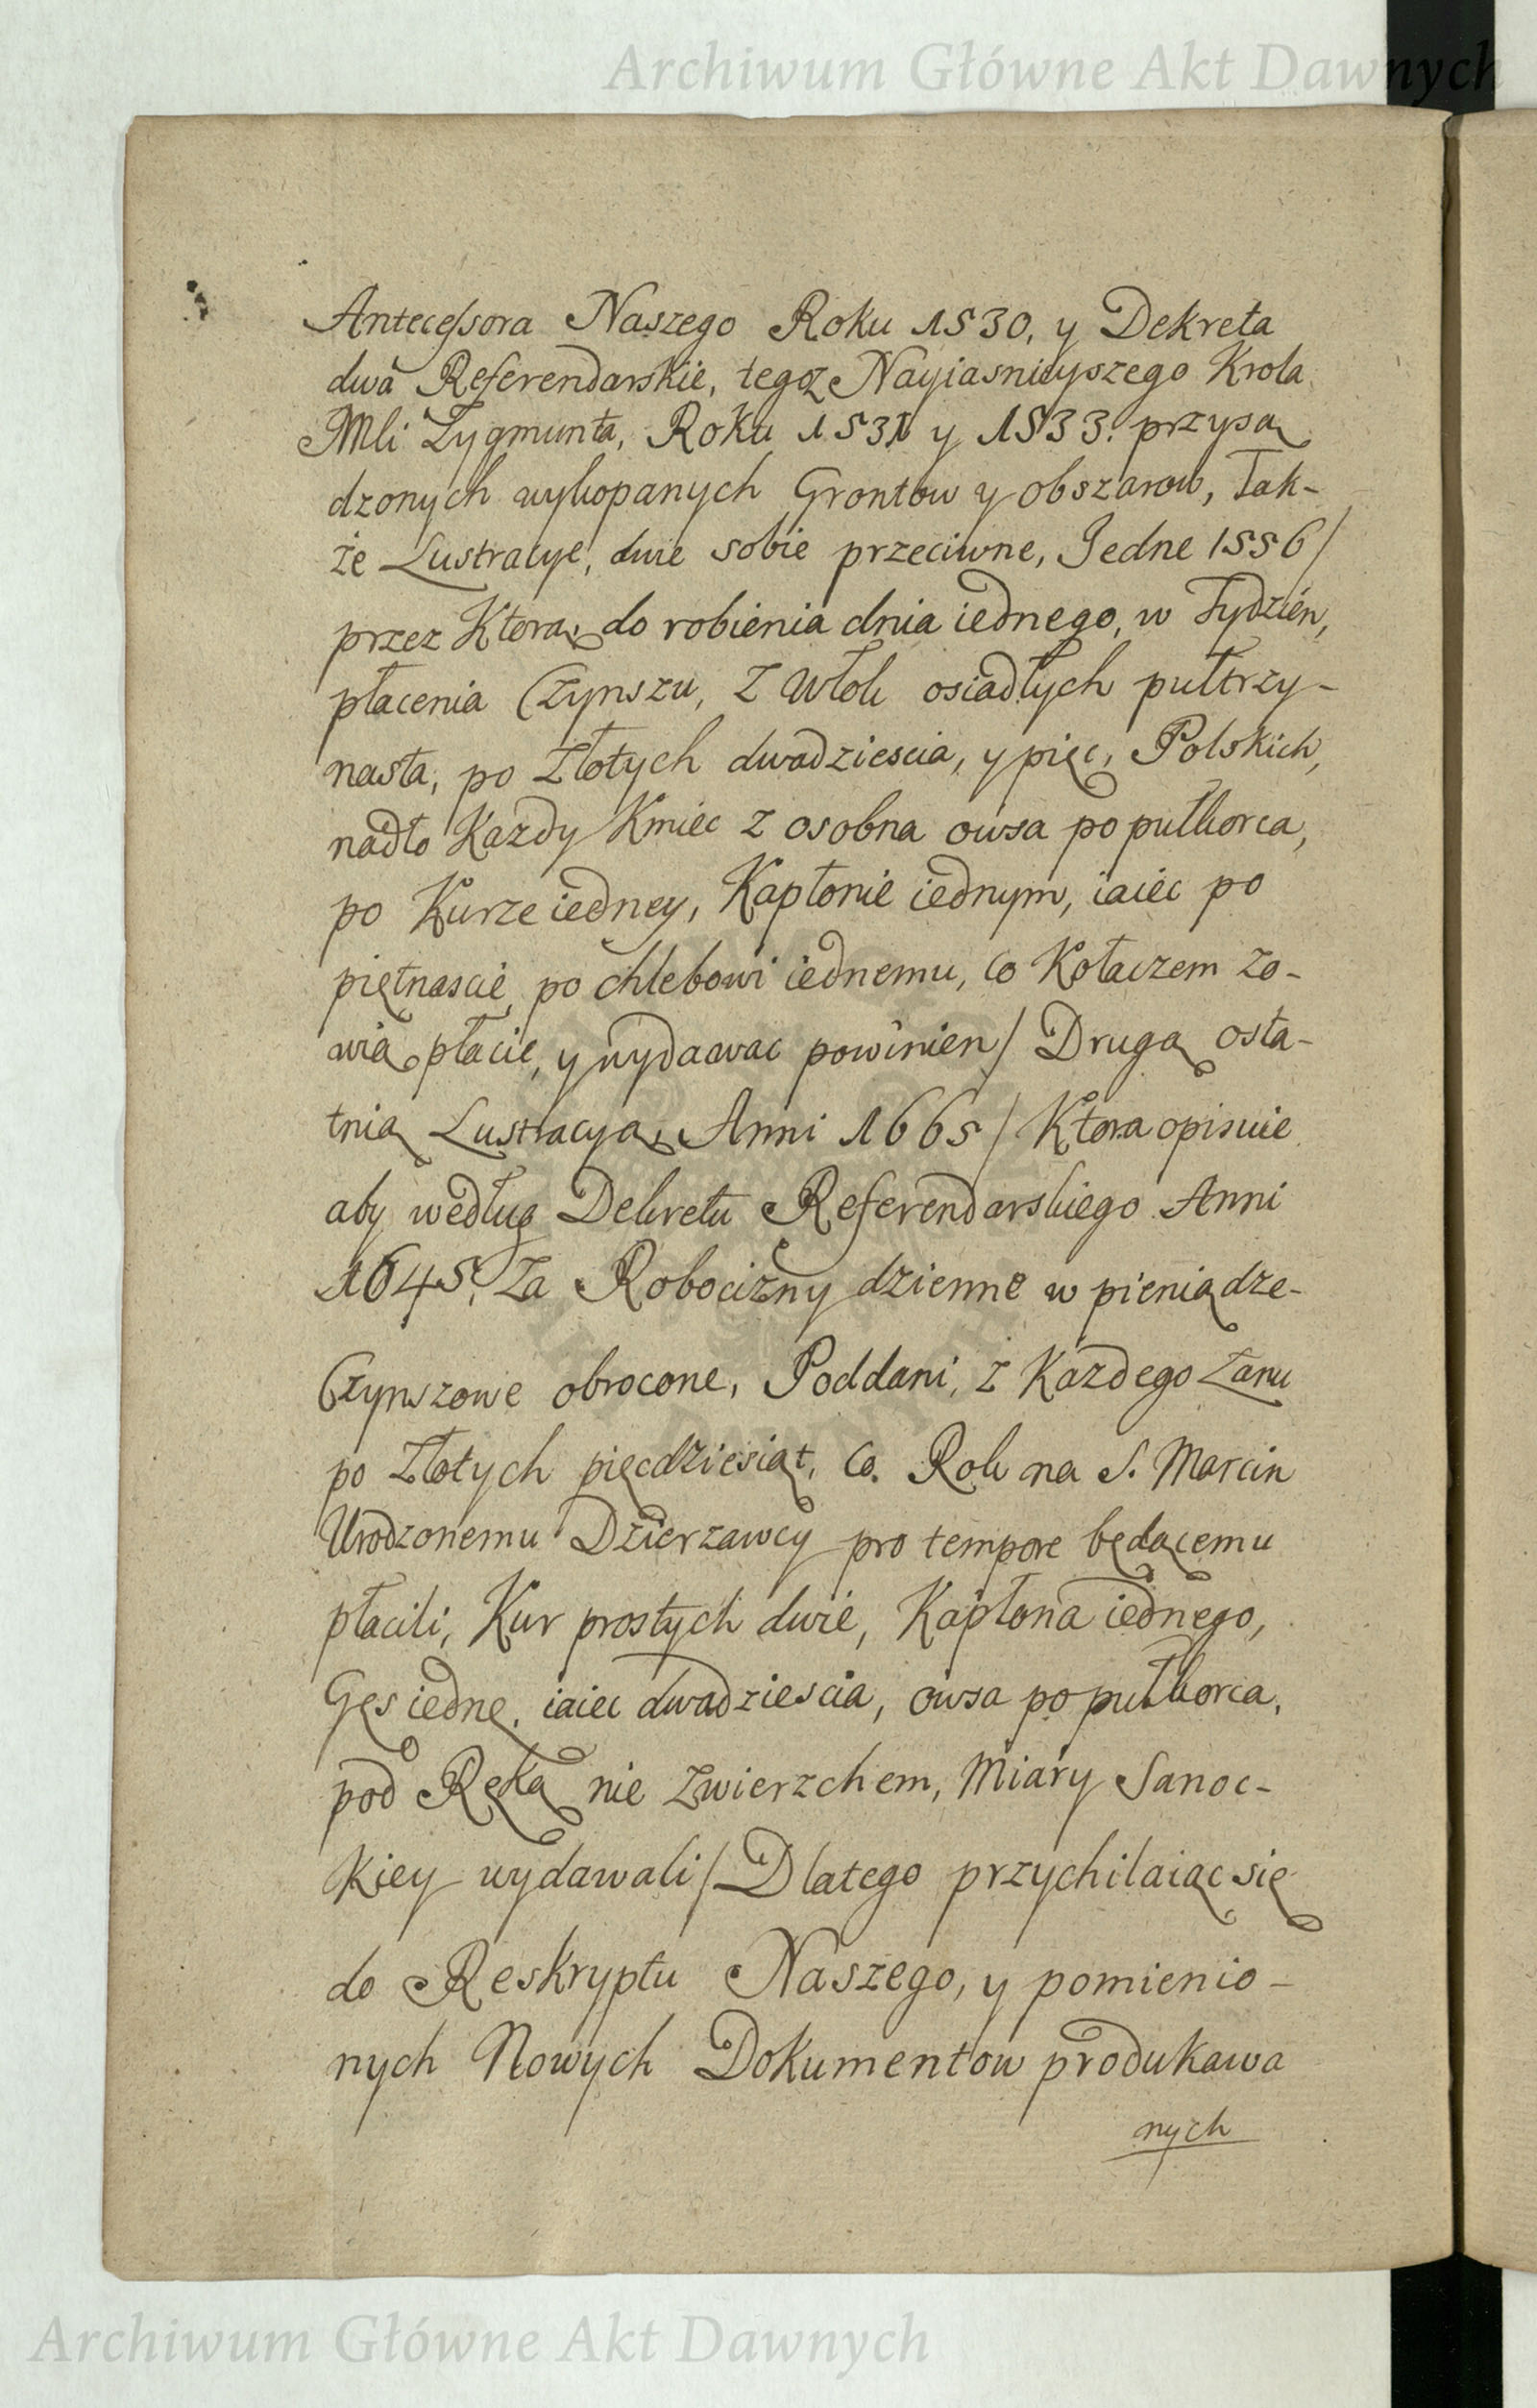 Archiwum Główne Akt Dawnych
Antecessora Naszego Roku 1530, y Dekreta
dwa Referendarskie, tegoz Nayiasnieyszego Krola
JMci Zygmunta, Roku 1531 y 1533. przysą
dzonych wykopanych Grontow y obszarow, Tak-
że Lustracye, dwie sobie przeciwne, Jedne 1556/
przez Ktorą, do robienia dnia iednego, w Tydzien,
płacenia Czynszu, z Włok osiadłych pułtrzy-
nasta, po Złotych dwadziescia, y pięc, Polskich,
nadto Kazdy Kmiec z osobna owsa po pułkorca,
po Kurze iedney, Kapłonie iednym, iaiec po
piętnascie, po chlebowi iednemu, co Kołaczem zo-
wią płacic, y wydawac powinien/ Drugą osta-
tnią Lustracyą, Anni 1665/ Ktora opisuie
aby według Dekretu Referendarskiego Anni
1645. Za Robocizny dzienne w pieniądze-
Czynszowe obrocone, Poddani, z Kazdego Łanu
po Złotych pięcdziesiąt, Co. Rok na S. Marcin
Urodzonemu Dzierzawcy pro tempore będącemu
płacili, Kur prostych dwie, Kapłona iednego,
Gęs iednę, iaiec dwadziescia, owsa po pułkorca,
pod Ręką nie Zwierzchem, Miary Sanoc-
Kiey wydawali/ Dlatego przychilaiąc się
do Reskryptu Naszego, y pomienio-
nych Nowych Dokumentow produkawa
nych
Archiwum Główne Akt Dawnych